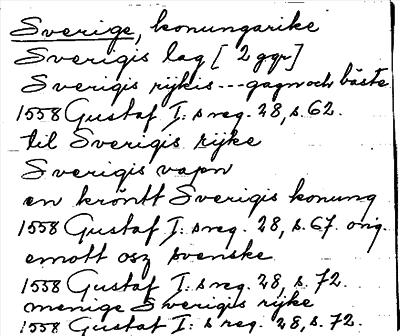 Sverige, konungarike
Sverigis lag [2 ggr]
Sverigis rijkis --- gagn och bäste
1558 Gustaf I: s reg. 28, s. 62.
til Sverigis rijke
Sverigis vapn
en kröntt Sverigis konung
1558 Gustaf I: s reg. 28, s. 67. orig.
emott osz svenske
1558 Gustaf I: s reg. 28, s. 72.
menige Sverigis rijke
1558 Gustaf I: s reg. 28, s. 72.